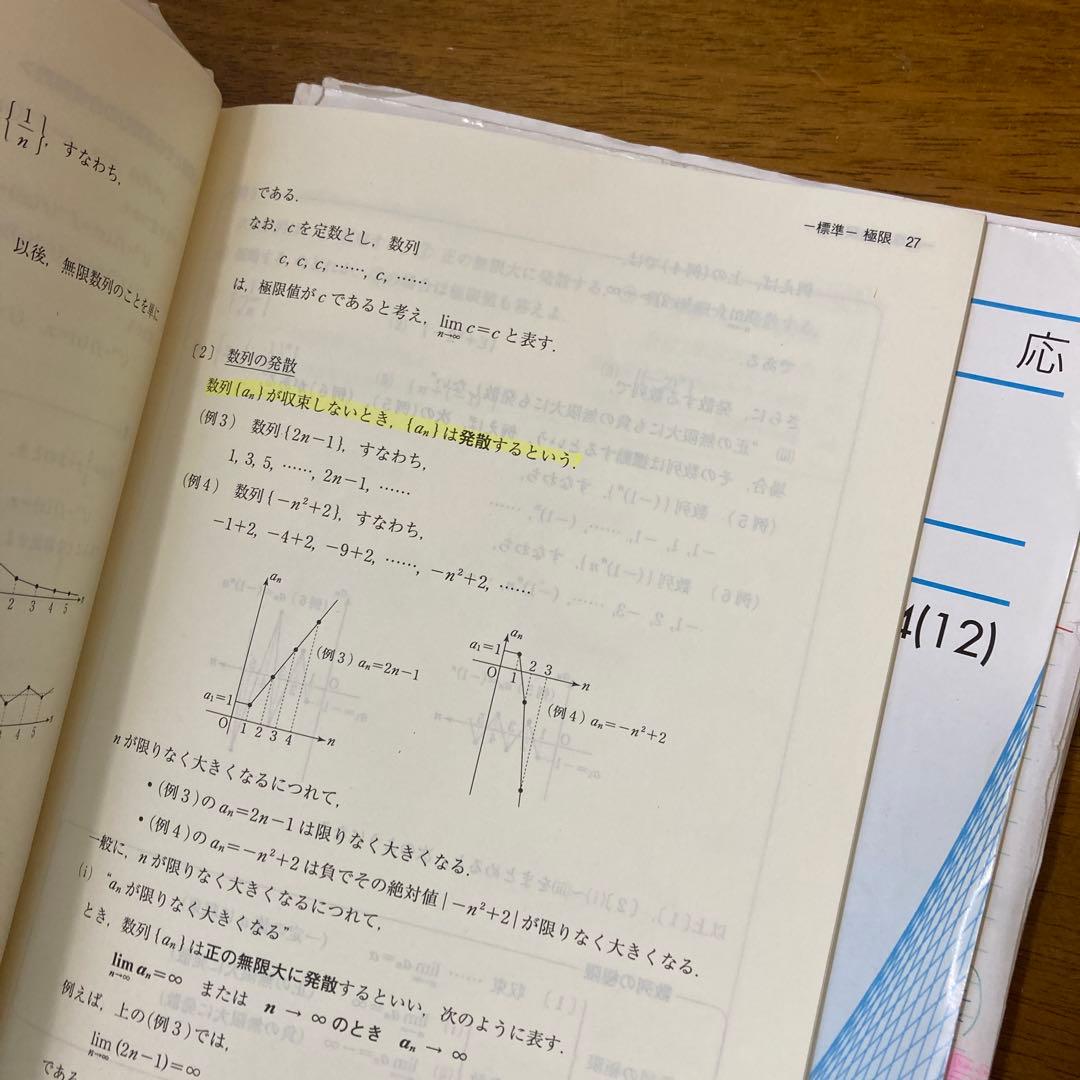 {1/n}, すなわち,
以後, 無限数列のことを単に
2 3 4 5
3 4 5
―標準― 極限 27
である.
なお, cを定数とし, 数列
c, c, c, ……, c, ……
は, 極限値がcであると考え, lim n→∞ c=c と表す.
〔2〕 数列の発散
数列{aₙ}が収束しないとき, {aₙ}は発散するという.
(例3) 数列{2n−1}, すなわち,
1, 3, 5, ……, 2n−1, ……
(例4) 数列{−n²+2}, すなわち,
−1+2, −4+2, −9+2, ……, −n²+2, ……
aₙ
(例3) aₙ=2n−1
a₁=1
O 1 2 3 4 n
aₙ
a₁=1
O 1 2 3 n
(例4) aₙ=−n²+2
nが限りなく大きくなるにつれて,
・(例3)のaₙ=2n−1は限りなく大きくなる.
・(例4)のaₙ=−n²+2は負でその絶対値|−n²+2|が限りなく大きくなる.
一般に, nが限りなく大きくなるにつれて,
(i) “aₙが限りなく大きくなる”
とき, 数列{aₙ}は正の無限大に発散するといい, 次のように表す.
lim n→∞ aₙ=∞ または n → ∞のとき aₙ → ∞
例えば, 上の(例3)では,
lim n→∞ (2n−1)=∞
である
応
4(12)